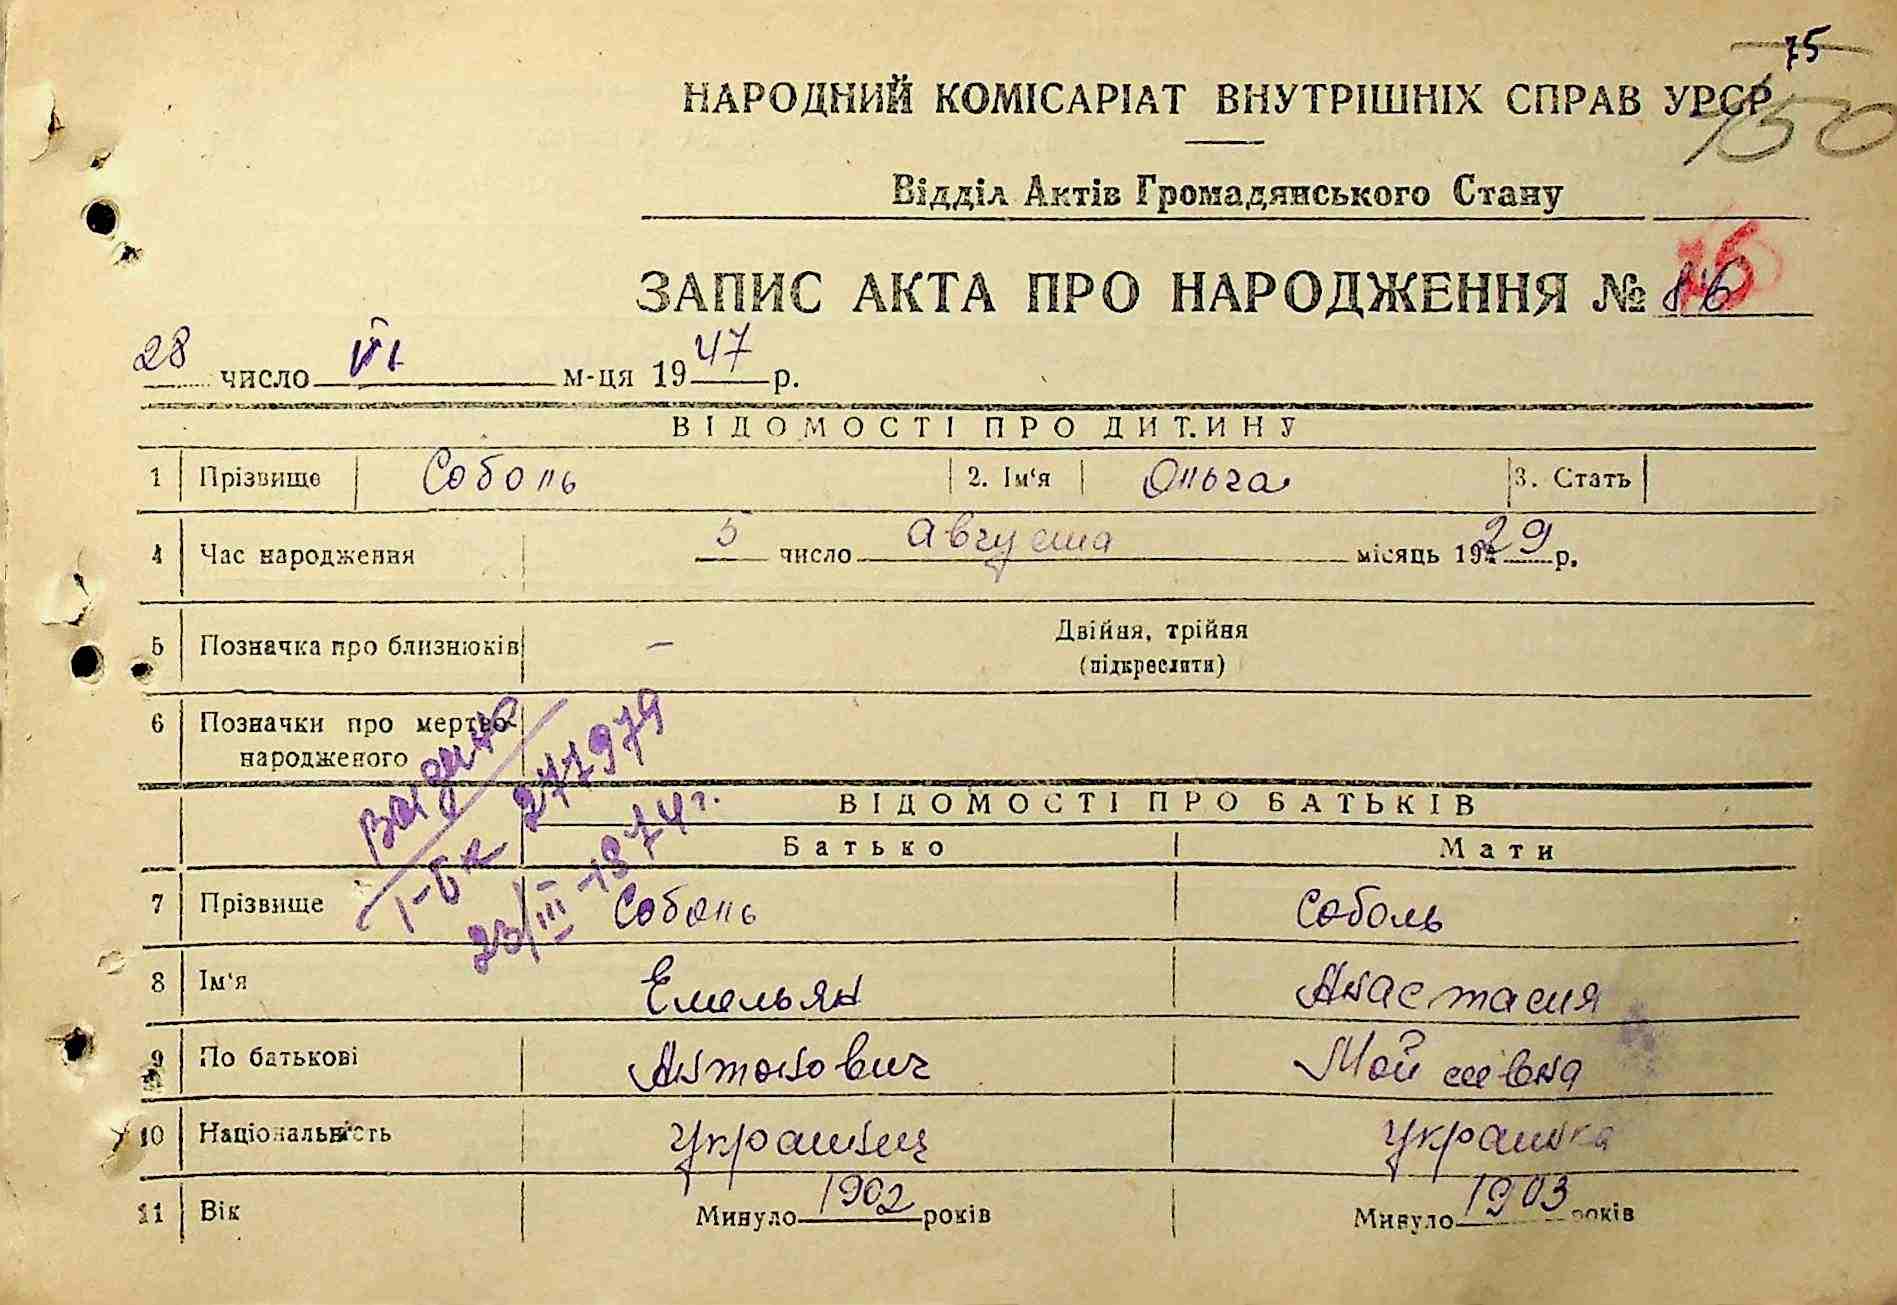 75
150
НАРОДНИЙ КОМІСАРІАТ ВНУТРІШНІХ СПРАВ УРСР
Відділ Актів Громадянського Стану
75
ЗАПИС АКТА ПРО НАРОДЖЕННЯ № 86
28 число VI м-ця 1947 р.
ВІДОМОСТІ ПРО ДИТИНУ
1 Прізвище Соболь 2. Ім'я Ольга 3. Стать
4 Час народження 5 число августа місяць 1929 р.
5 Позначка про близнюків – Двійня, трійня
(підкреслити)
6 Позначки про мертво-
народженого
Видано
І-БК 277979
23/III-1974 г.
ВІДОМОСТІ ПРО БАТЬКІВ
Батько Мати
7 Прізвище Соболь Соболь
8 Ім'я Емельян Анастасия
9 По батькові Антонович Мойсеївна
10 Національність украинец украинка
11 Вік Минуло 1902 років Минуло 1903 років